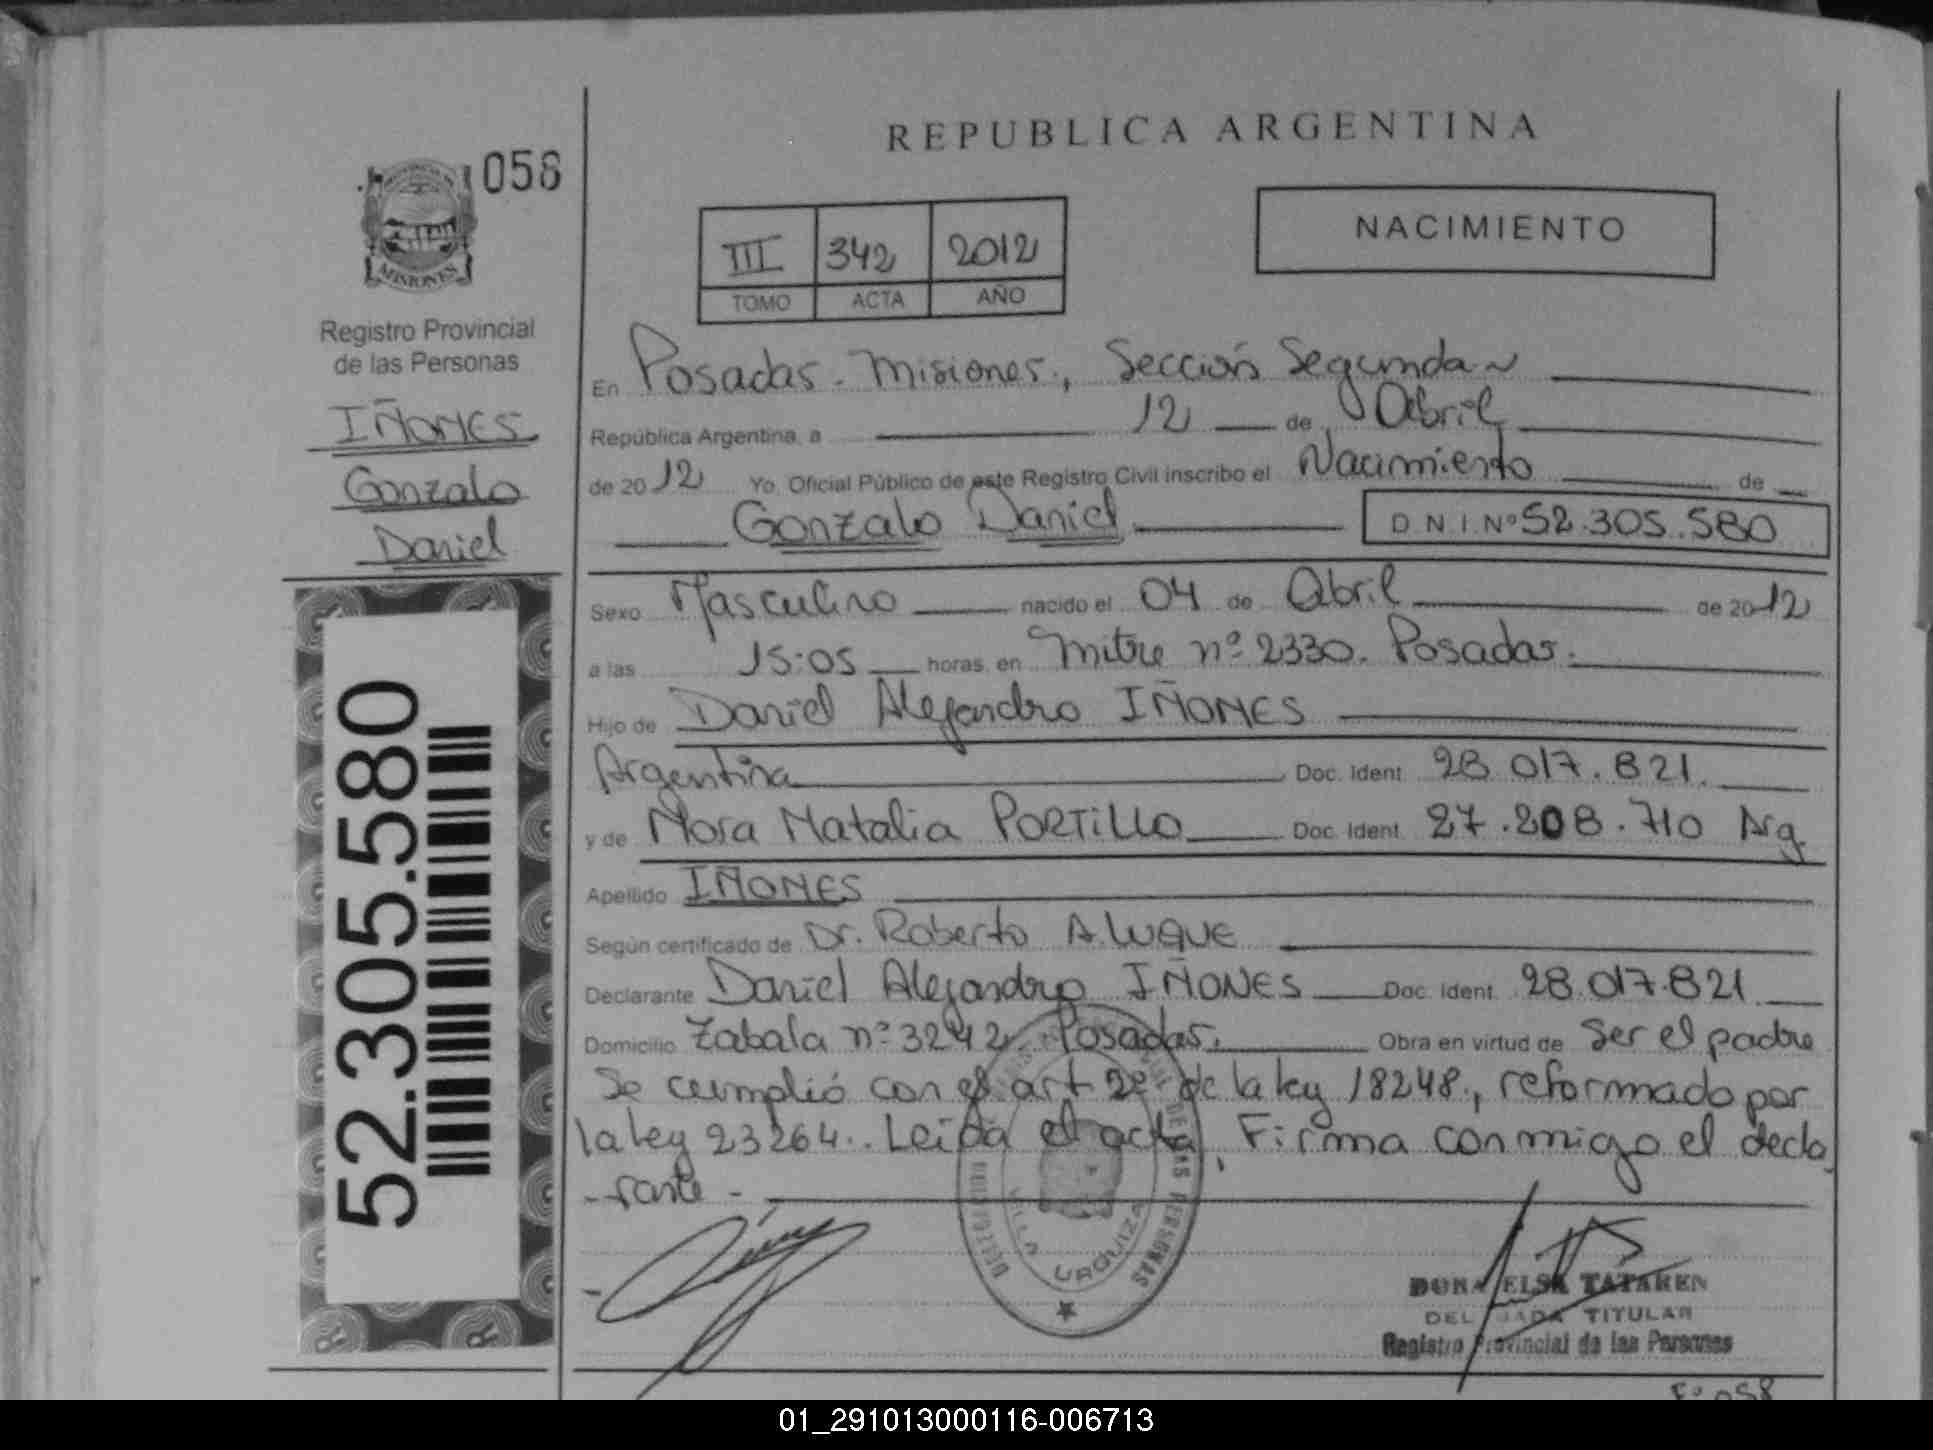 REPUBLICA ARGENTINA
058
MISIONES
Registro Provincial
de las Personas
IÑONES
Gonzalo
Daniel
52.305.580
III 342 2012
TOMO ACTA AÑO
NACIMIENTO
En Posadas - Misiones, Sección Segunda
República Argentina, a 12 de Abril
de 2012 Yo, Oficial Público de este Registro Civil inscribo el Nacimiento de
Gonzalo Daniel D.N.I.Nº 52.305.580
Sexo Masculino nacido el 04 de Abril de 2012
a las 15:05 horas, en Mitre nº 2330. Posadas.
Hijo de Daniel Alejandro IÑONES
Argentina Doc. Ident. 28.017.821.
y de Nora Natalia PORTILLO Doc. Ident. 27.208.710 Arg
Apellido IÑONES
Según certificado de Dr. Roberto A. LUQUE
Declarante Daniel Alejandro IÑONES Doc. Ident. 28.017.821
Domicilio Zabala nº 3242 Posadas. Obra en virtud de Ser el padre
Se cumplió con el art 2º de la ley 18248, reformado por
la ley 23264. Leída el acta, Firma conmigo el decla
-rante-
VILLA URQUIZA
DE LAS PERSONAS
DORA ELSA TATAREN
DELEGADA TITULAR
Registro Provincial de las Personas
Fº 058
01_291013000116-006713